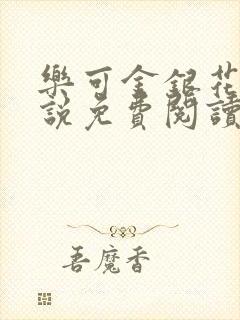 樂可金銀花
說免費閱讀
吾魔香